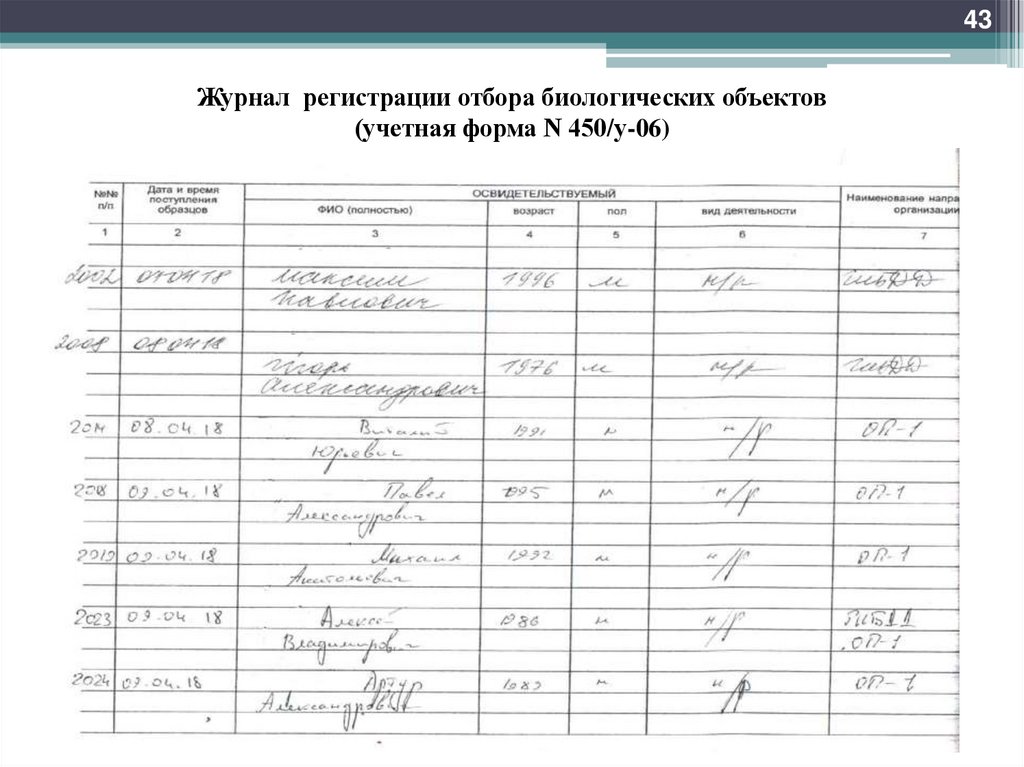 43
Журнал регистрации отбора биологических объектов
(учетная форма N 450/у-06)
№№ п/п
Дата и время поступления образцов
ОСВИДЕТЕЛЬСТВУЕМЫЙ
ФИО (полностью)
возраст
пол
вид деятельности
Наименование напра
организации
1 2 3 4 5 6 7
2002 07 04 18 Максим 1996 м н/р ГИБДД
Павлович
2008 08 04 18
Игорь 1976 м н/р ГИБДД
Александрович
08.04.18 Виталий 1991 м н/р ОП-1
Юрьевич
2018 09.04.18 Павел 1995 м н/р ОП-1
Александрович
2019 09.04.18 Михаил 1992 м н/р ОП-1
Анатольевич
2023 09.04 18 Алексей 1986 м н/р ГИБДД
Владимирович ОП-1
2024 09.04.18 Артур м н/р ОП-1
Александрович